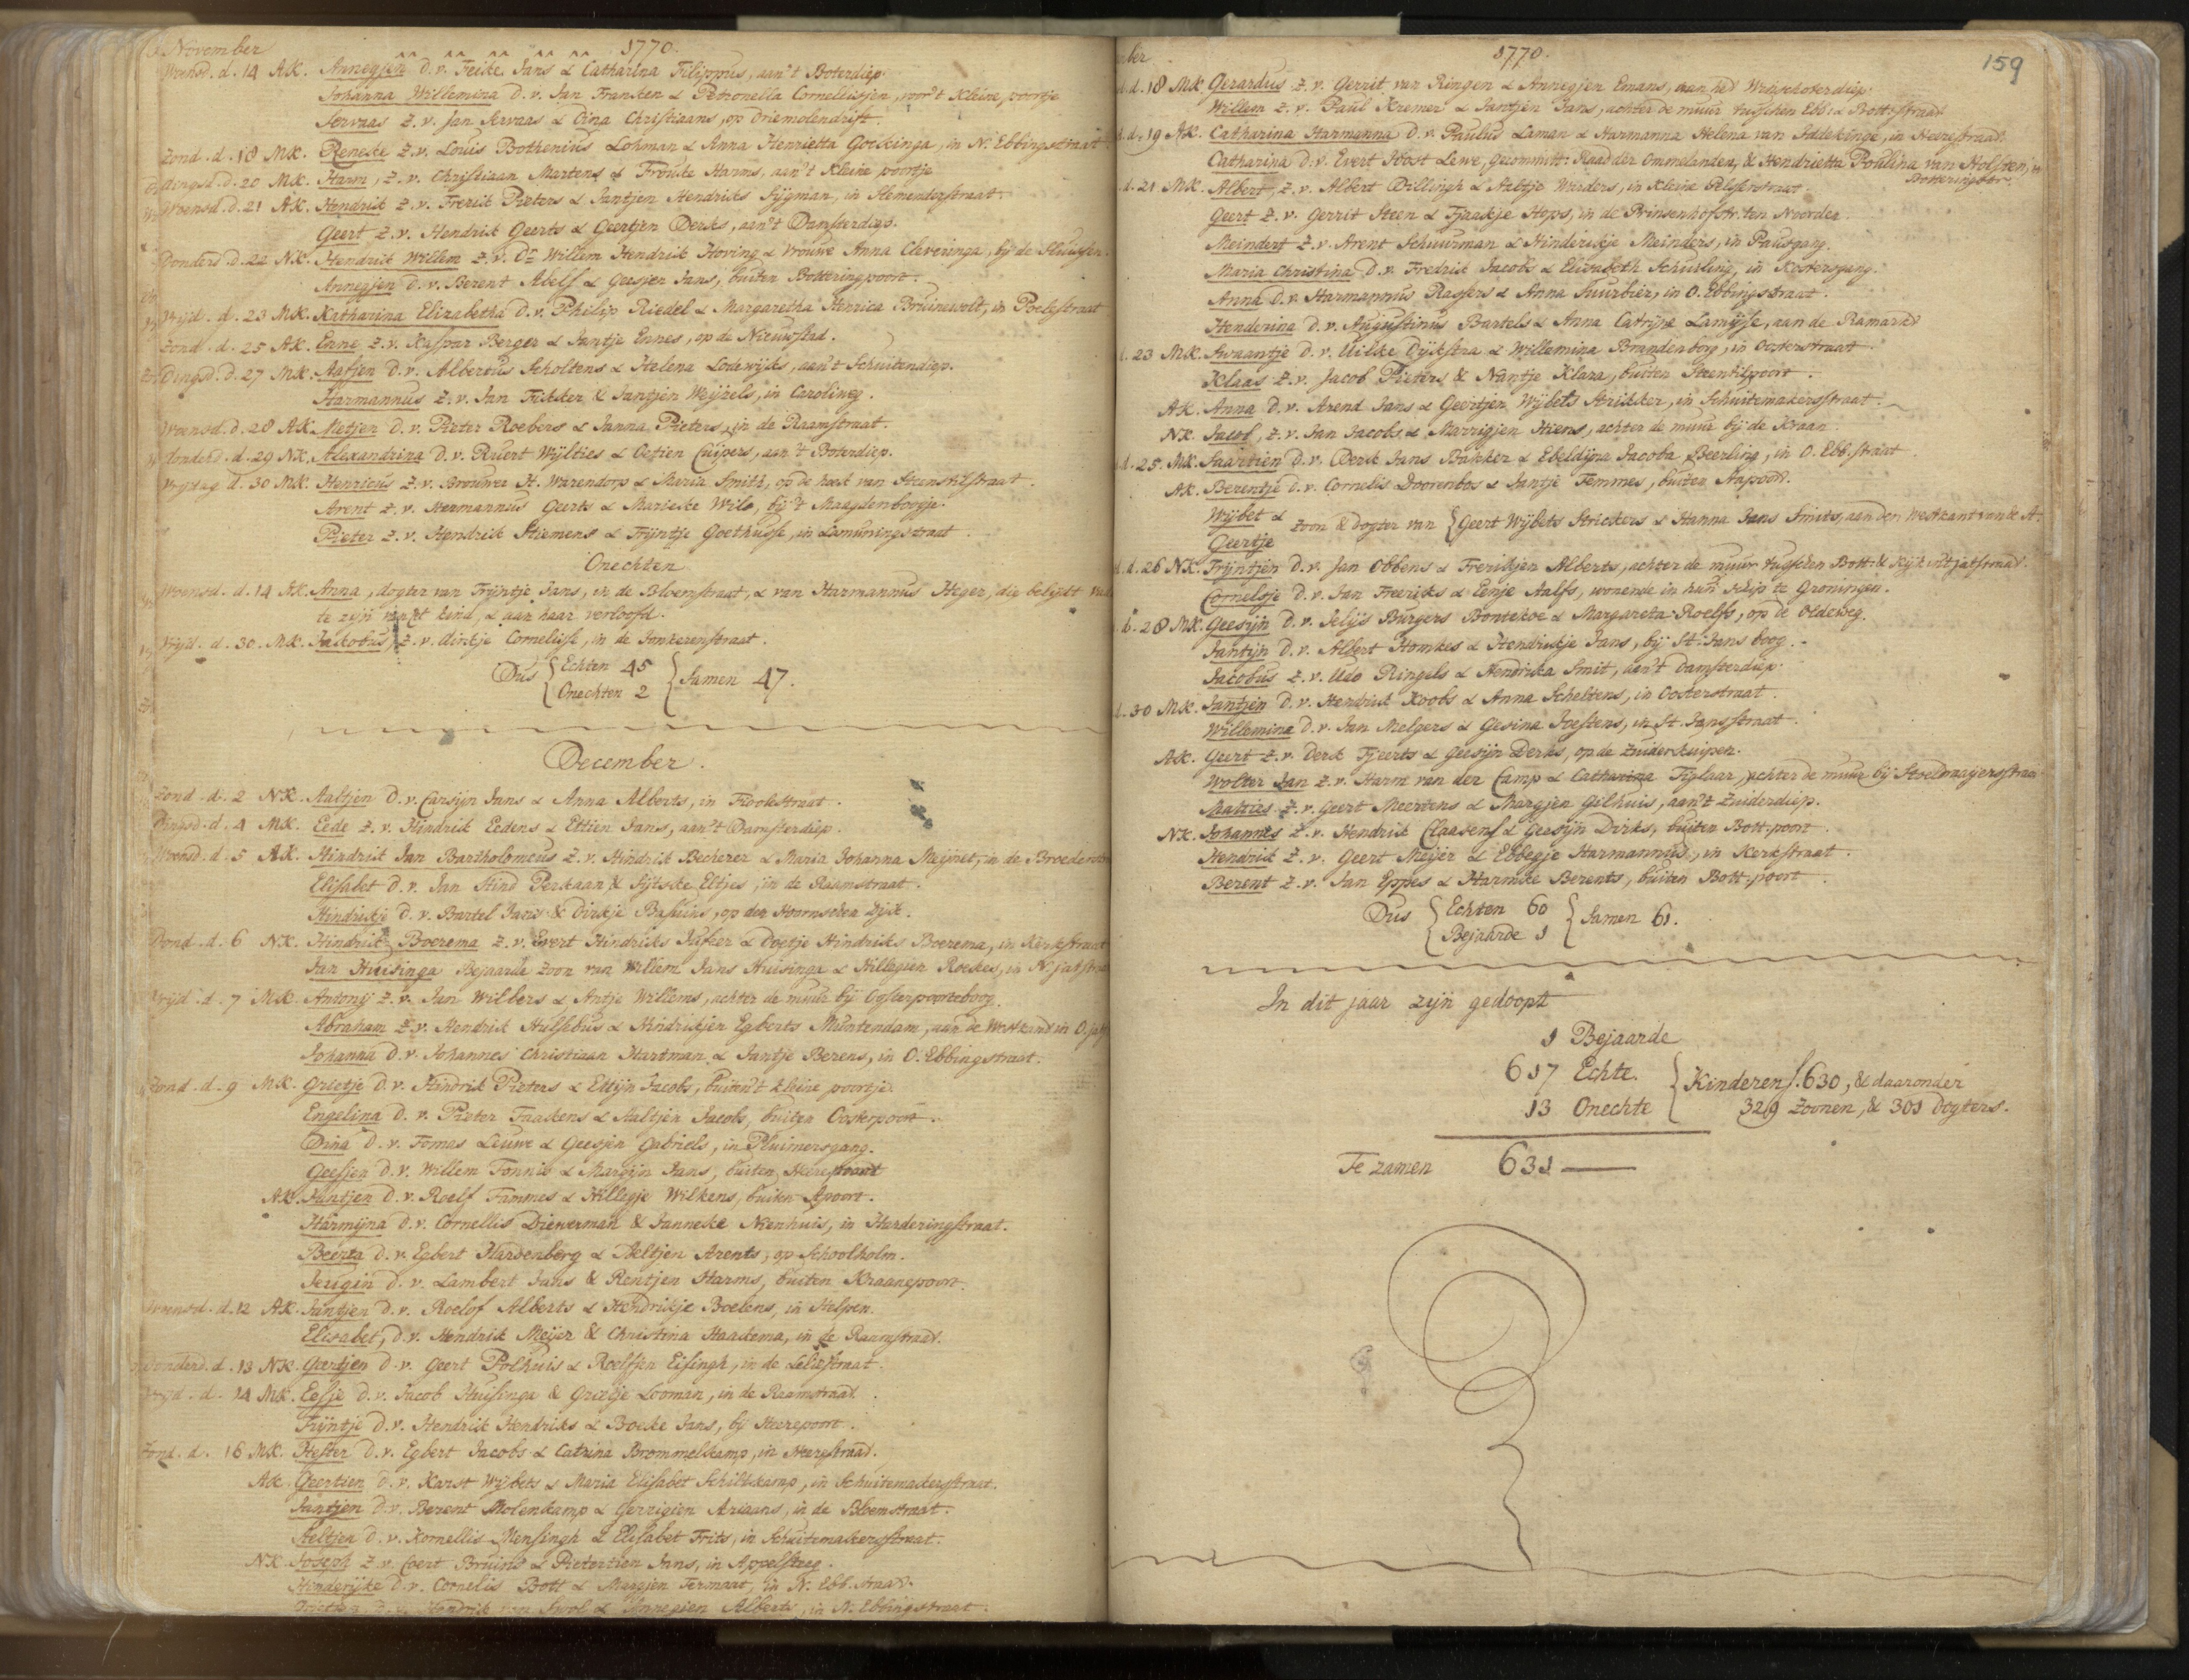 November 1770.
Woensd. d. 14 AK. Annegjen d. v. Feike Jans & Catharina Filippus, aan't Boterdiep.
Johanna Willemina D. v. Jan Fransken & Petronella Cornellisjen, voor't Kleine poortje
Servaas z. v. Jan Servaas & Dina Christiaans, op Driemolendrift.
Zond. d. 18 MK. Reneke z. v. Louis Bothenius Lohman & Anna Henrietta Gockinga, in N. Ebbingestraat
Dingsd. d. 20 MK. Harm, z. v. Christiaan Martens & Frouke Harms, aan't Kleine poortje
Woensd. d. 21 AK. Hendrik z. v. Frerik Pieters & Jantjen Hendriks Sijgman, in
Geert z. v. Hendrik Geerts & Geertjen Derks, aan't Damsterdiep.
Donderd. d. 22 NK. Hendrik Willem z. v. Dr. Willem Hendrik Hoving & Vrouwe Anna Cleveringa, bij de Sluisjen.
Annegjen d. v. Berent Abels & Geesjen Jans, buiten Botteringpoort.
Vrijd. d. 23 MK. Katharina Elizabetha D. v. Philip Riedel & Margaretha Henrica Bruinewolt, in Poelestraat
Zond. d. 25 AK. Enne z. v. Kaspar Berger & Jantje Ennes, op de Nieuwstad.
Dingsd. d. 27 MK. Aafjen d. v. Albertus Scholtens & Helena Lodewijks, aan't Schuitendiep.
Harmannus z. v. Jan Fikkker & Jantjen Weijzels, in Carolineg.
Woensd. d. 28 AK. Metjen d. v. Pieter Roebers & Janna Pieters, in de Raamstraat.
Donderd. d. 29 NK. Alexandrina D. v. Ruert Wijlties & Octien Cuipers, aan't Boterdiep.
Vrijdag d. 30 MK. Henricus z. v. Brouwer H. Warendorp & Maria Smith, op de hoek van Steentilstraat.
Arent z. v. Hermannus Geerts & Marieke Wilo, bij't Maagdenboogje.
Pieter z. v. Hendrik Hiemens & Trijntje Goethusse, in Lamuningestraat
Onechten
Woensd. d. 14 AK. Anna, dogter van Trijntje Jans, in de Bloemstraat, & van Harmannus Heger, die belijdt
te zijn van't kind, & aan haar verloofd.
Vrijd. d. 30. MK. Jackobus, z. v. dirkje Cornelisse, in de Jonkerenstraat.
Dus { Echten 45
Onechten 2 { Samen 47.
December.
Zond. d. 2 NK. Aaltjen d. v. Carsijn Jans & Anna Alberts, in Fiookstraat.
Dingsd. d. 4 MK. Eede z. v. Hindrik Eedens & Ettien Jans, aan't Damsterdiep.
Woensd. d. 5 AK. Hindrik Jan Bartholomeus z. v. Hindrik Becherer & Maria Johanna Meijnet, in de
Elisabet d. v. Jan Hind Perkaan & Sijtske Eltjes, in de Raamstraat.
Hindrikje d. v. Bartel Jans & Dirkje Basuins, op den Hoornschen Dijk.
Dond. d. 6 NK. Hindrik Boerema z. v. Evert Hindriks Jasker & Doetje Hindriks Boerema, in Kerkstraat
Jan Huisinga Bejaarde zoon van Willem Jans Huisinga & Hillegien Roeskes, in N. jatstraat
Vrijd. d. 7 MK. Antonij z. v. Jan Wilbers & Antje Willems, achter de muur bij Oosterpoorteboog.
Abraham z. v. Hendrik Hulsebus & Hindrikjen Egberts Muntendam, aan de Westkand in O. jat
Johanna d. v. Johannes Christiaan Hartman & Jantje Berens, in O. Ebbingstraat.
Zond. d. 9 MK. Grietje d. v. Hindrik Pieters & Eltijn Jacobs, buiten't kleine poortje.
Engelina d. v. Pieter Faaskens & Aaltjen Jacobs, buiten Oosterpoort.
Dina d. v. Tomas Leuwe & Geesjen Gabriels, in Pluimersgang.
Geesjen d. v. Willem Tonnis & Margijn Jans, buiten Heerestraat
AK. Jantjen d. v. Roelf Tammes & Hillegje Wilkens, buiten Apoort.
Harmijna d. v. Cornellis Diewerman & Janneke Nienhuis, in Harderingstraat.
Beerta d. v. Egbert Hardenberg & Aeltjen Arents, op Schoolholm.
Jeugin d. v. Lambert Jans & Rentjen Harms, buiten Kraanepoort.
Woensd. d. 12 AK. Jantjen d. v. Roelof Alberts & Hendrikje Boelens, in Helpen.
Elisabet, d. v. Hendrik Meijer & Christina Haackema, in de Raamstraat.
Donderd. d. 13 NK. Geertjen d. v. Geert Polhuis & Roelfjen Eisingh, in de Leliestraat.
Vrijd. d. 14 MK. Eefje d. v. Jacob Huisinga & Grietje Looman, in de Raamstraat.
Trijntje d. v. Hendrik Hendriks & Boeke Jans, bij Heerepoort.
Zond. d. 16 MK. Hester d. v. Egbert Jacobs & Catrina Brommelkamp, in Heerestraat.
AK. Geertien d. v. Karst Wijbets & Maria Elisabet Schiltkamp, in Schuitemakersstraat.
Jantjen d. v. Berent Molenkamp & Gerrigien Ariaans, in de Bloemstraat.
Aeltjen d. v. Kornellis Mensingh & Elisabet Frits, in Schuitemakersstraat.
NK. Joseph z. v. Coert Bruins & Pietertien Jans, in Appelsteeg.
Henderijke d. v. Cornelis Bott & Margjen Termaat, in N. Ebb. straat.
Hendrik van Swol & Annegien Alberts, in N. Ebbingstraat.
ber 1770. 159
d. 18 MK. Gerardus z. v. Gerrit van Ringen & Annegjen Emans, aan het Winschoterdiep.
Willem z. v. Paul Kremer & Jantjen Jans, achter de muur tusschen Ebb: & Bott: straat
d. 19 AK. Catharina Harmanna D. v. Paulus Laman & Harmanna Helena van Iddekinge, in Heerestraat.
Catharina d. v. Evert Joost Lewe, gecommitt: Raad der Ommelanden, & Hendrietta Poulina van Holsten, in
Botteringstr.
d. 21 MK. Albert, z. v. Albert Dillingh & Aeltje Warders, in kleine Pelsterstraat.
Geert z. v. Gerrit Steen & Tjaakje Hops, in de Prinsenhofstr. ten Noorder.
Meindert z. v. Arent Schuurman & Hinderikje Meinders, in Pausgang.
Maria Christina D. v. Fredrik Jacobs & Elisabeth Schuiling, in Kostersgang.
Anna D. v. Harmannus Rassers & Anna Suurbier, in O. Ebbingstraat.
Henderina d. v. Augustinus Bartels & Anna Catrijna Lamijse, aan de Ramarkt
d. 23 MK. Swaantje D. v. Uilke Dijkstra & Willemina Brandenborg, in Oosterstraat.
Klaas z. v. Jacob Pieters & Nantje Klara, buiten Steentilpoort.
AK. Anna D. v. Arend Jans & Geertjen Wijbets Strikker, in Schuitemakersstraat.
NK. Jacob, z. v. Jan Jacobs & Marrigjen Hiens, achter de muur bij de Kraan.
d. 25. MK. Saartien d. v. Derk Jans Bakker & Ebeldijna Jacoba Beerling, in O. Ebb. straat
AK. Berentje d. v. Cornelis Doorenbos & Jantje Temmes, buiten Apoort.
Wijbet &
Geertje zoon & dogter van { Geert Wijbets Strickers & Hanna Jans Smits, aan den Westkant van de A.
d. 26 NK. Trijntjen D. v. Jan Obbens & Frerikjen Alberts, achter de muur tusschen Bott. & Kijk int jatstraat.
Cornelsje D. v. Jan Freeriks & Eenje Aalfs, wonende in hun schip te Groningen.
d. 28 MK. Geesijn D. v. Jelijs Burgers Bontekoe & Margareta Roelfs, op de Oldeweg.
Jantijn D. v. Albert Homkes & Hendrikje Jans, bij St. Jans boog.
Jacobus z. v. Udo Ringels & Hendrika Smit, aan't Damsterdiep.
d. 30 MK. Jantjen d. v. Hendrik Koobs & Anna Scheltens, in Oosterstraat.
Willemina D. v. Jan Melgers & Gesina Joestens, in St. Jansstraat.
AK. Geert z. v. Derk Tjeerts & Geesijn Derks, op de Zuiderkuipen.
Wolter Jan z. v. Harm van der Camp & Catharina Tiglaar, achter de muur bij Stoeldraijersstraat
Matties z. v. Geert Meertens & Margjen Gilhuis, aan't Zuiderdiep.
NK. Johannes z. v. Hendrik Claasens & Geesijn Dirks, buiten Bott. poort.
Hendrik z. v. Geert Meijer & Ebbegje Harmannus, in Kerkstraat.
Berent z. v. Jan Eppes & Harmke Berents, buiten Bott. poort.
Dus { Echten 60
Bejaarde 1 { Samen 61.
In dit jaar zijn gedoopt
1 Bejaarde
617 Echte.
13 Onechte { Kinderen S. 630, & daaronder
329 zoonen, & 301 dogters.
Te zamen 631